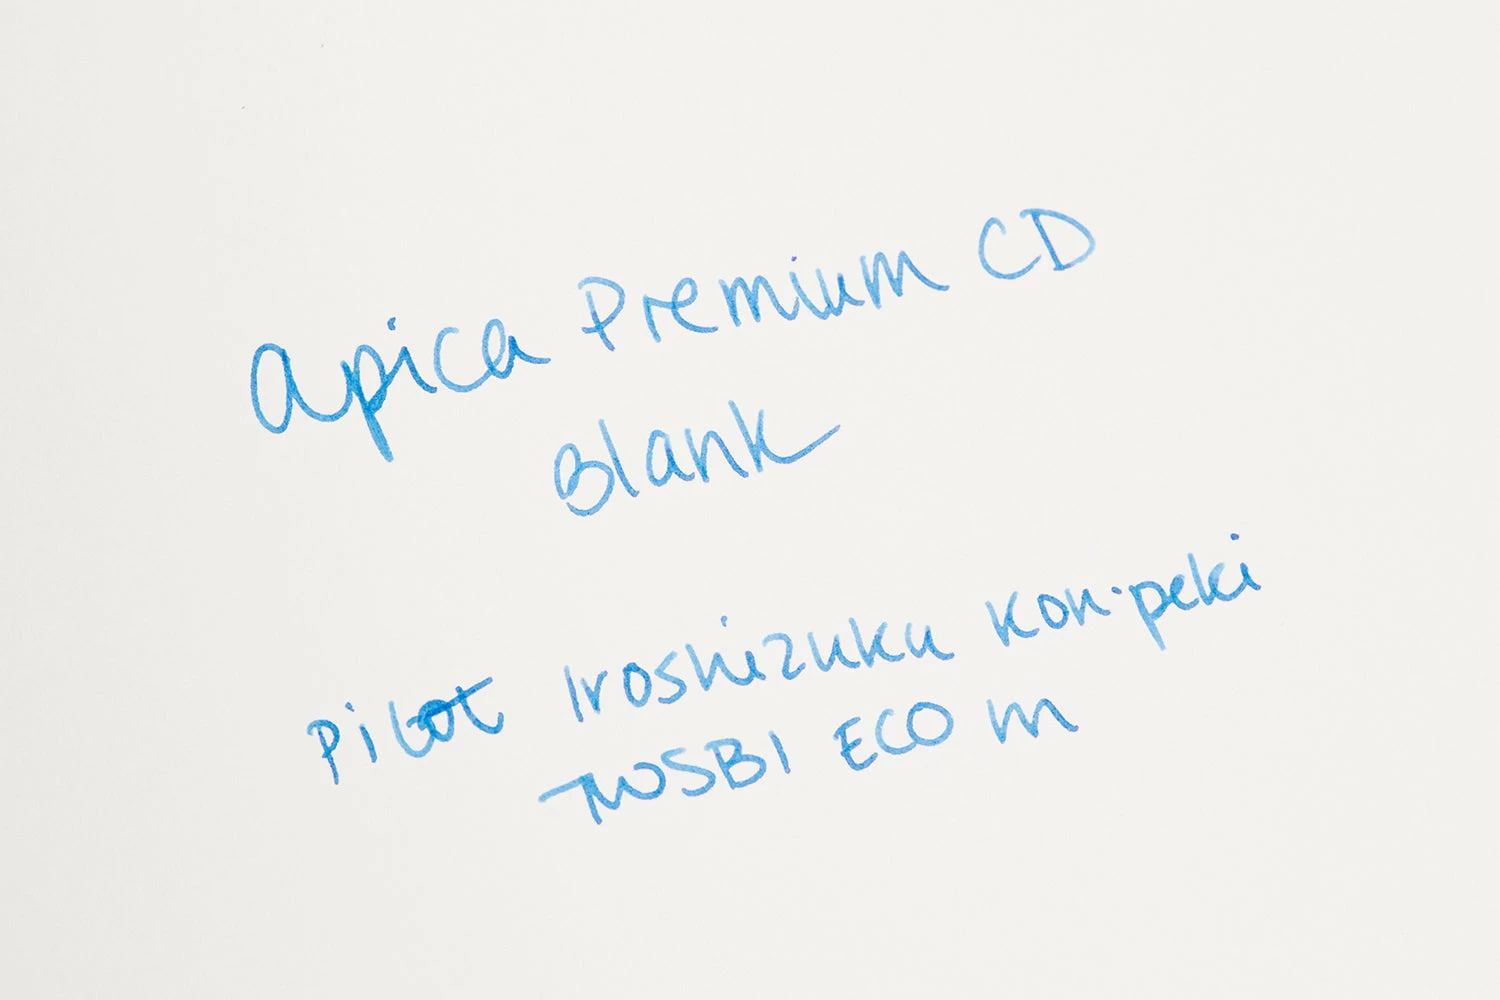 Apica Premium CD
Blank
Pilot Iroshizuku Kon-peki
TWSBI ECO M